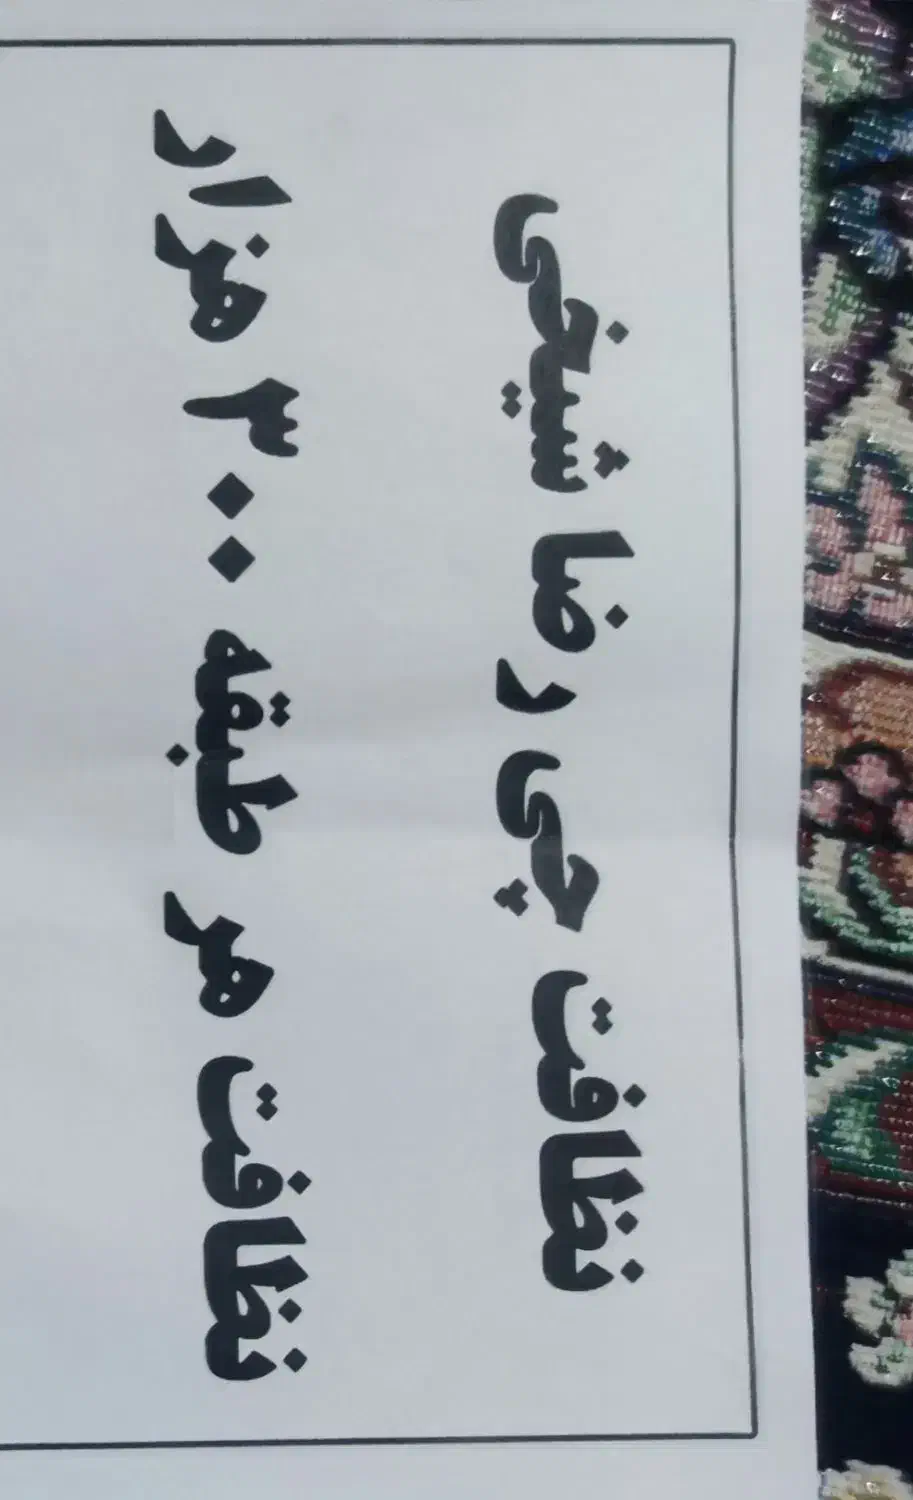 نظافت چی رضا شیخی
نظافت هر طبقه ۳۰۰ هزار